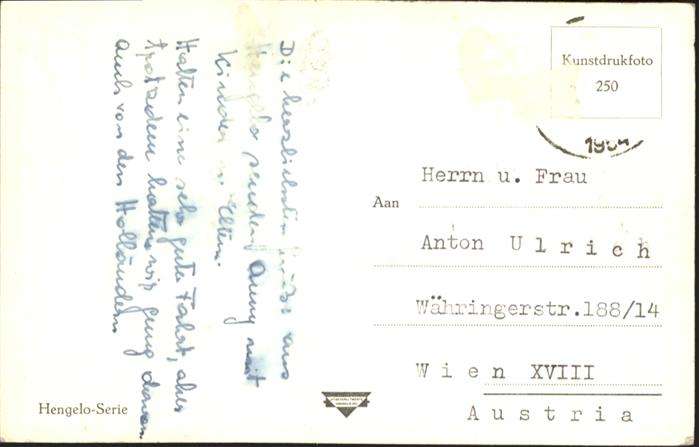 Die herzlichsten Grüße aus
Hengelo senden Anny mit
Kinder u. Eltern.
Hatten eine sehr gute Fahrt, aber
trotzdem hatten wir genug davon
auch von den Holländern
Kunstdrukfoto
250
Aan
Herrn u. Frau
Anton Ulrich
Währingerstr.188/14
Wien XVIII
Austria
Hengelo-Serie